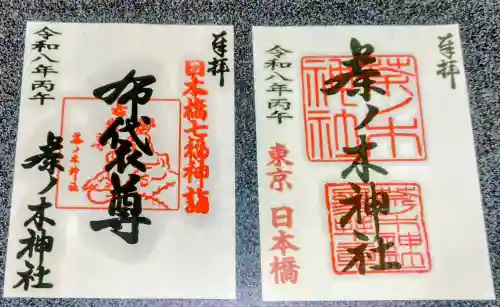 奉拝
日本橋七福神詣
布袋尊
茶ノ木神社
令和八年丙午
茶ノ木神社
奉拝
茶ノ木神社
東京 日本橋
令和八年丙午